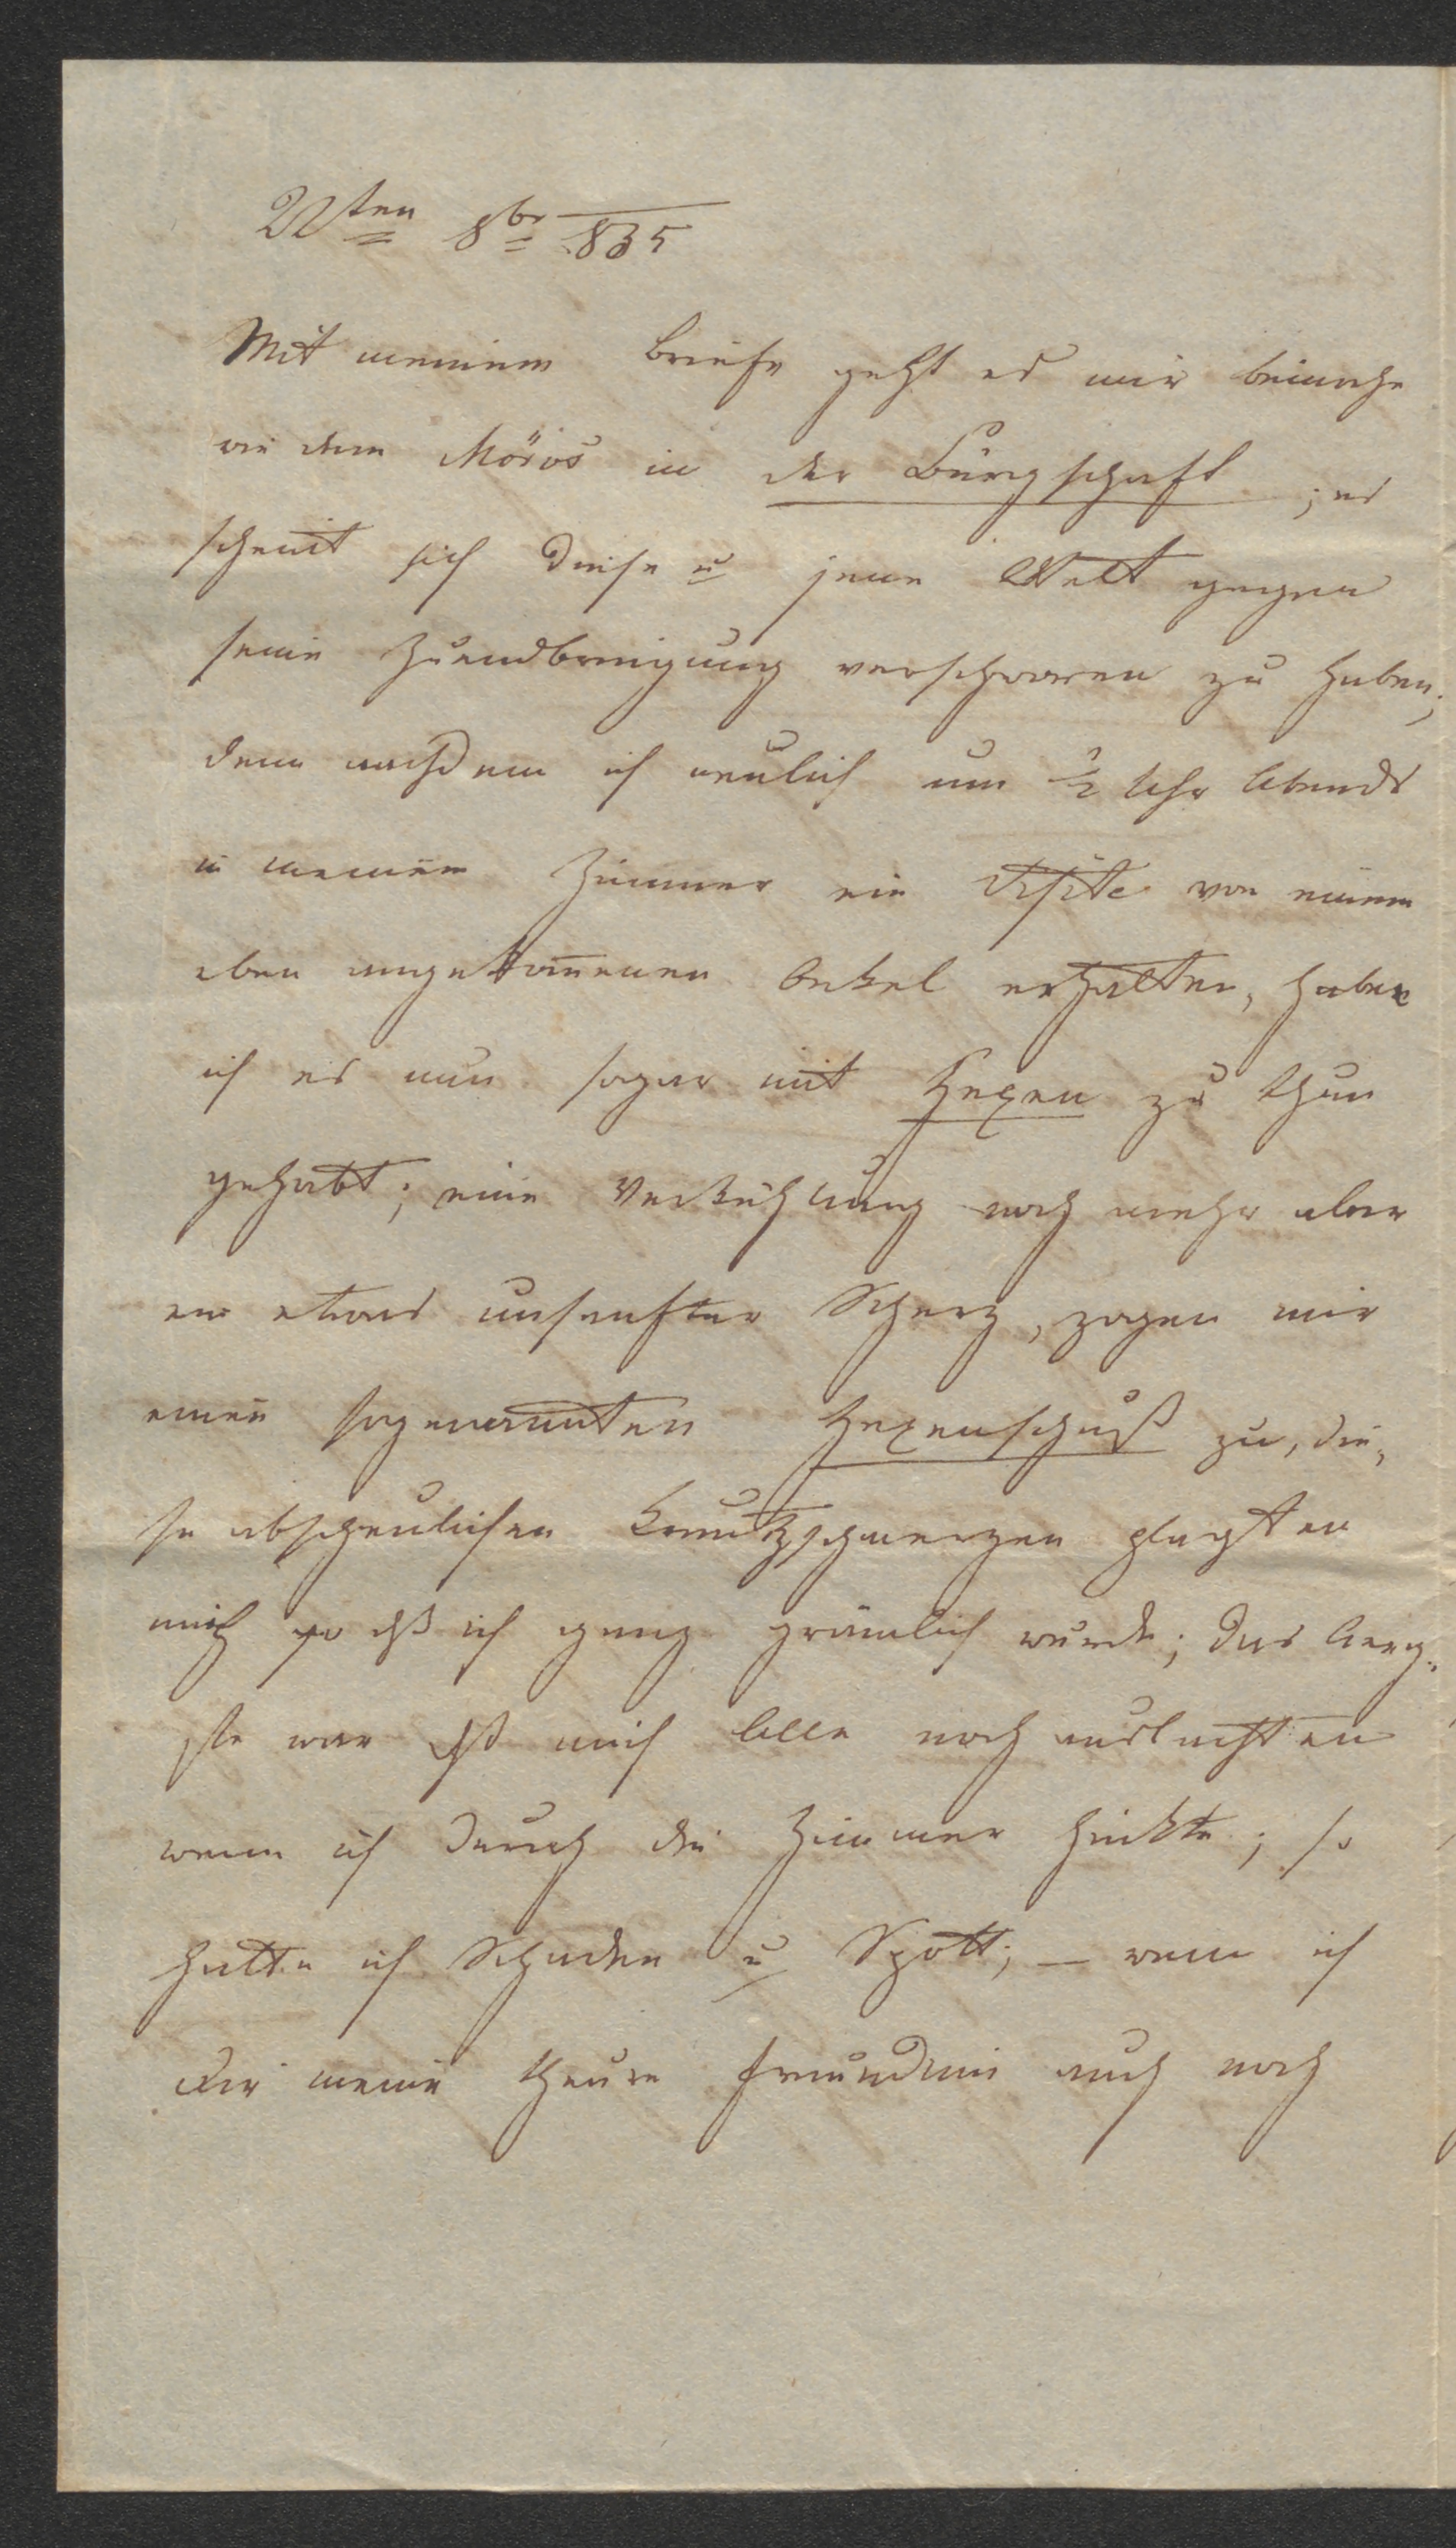 22ten 8br 835
Mit meinem Briefe geht es mir beinahe
wie dem Möros in der Bürgschaft; es
scheint sich diese u jene Welt gegen
seine Zuendbringung verschworen zu haben;
denn nachdem ich neulich um Uhr Abends
in meinem Zimmer ein Visite von einem
eben angekom̄enen Onkel erhalten, habe
ich es nun sogar mit Hexen zu thun
gehabt; eine Verkühlung noch mehr aber
ein etwas unsanfter Scherz, zogen mir
einen sogenannten Hexenschuß zu, die,
se abscheulichen Kreutzschmerzen plagten
mich so dß ich ganz grämlich wurde; das Aerg,
ste war dß mich Alle noch auslachten
wenn ich durch die Zimmer hinkte; so
hatte ich Schaden u Spott; – wenn ich
Dir meine theure Freundinn auch noch